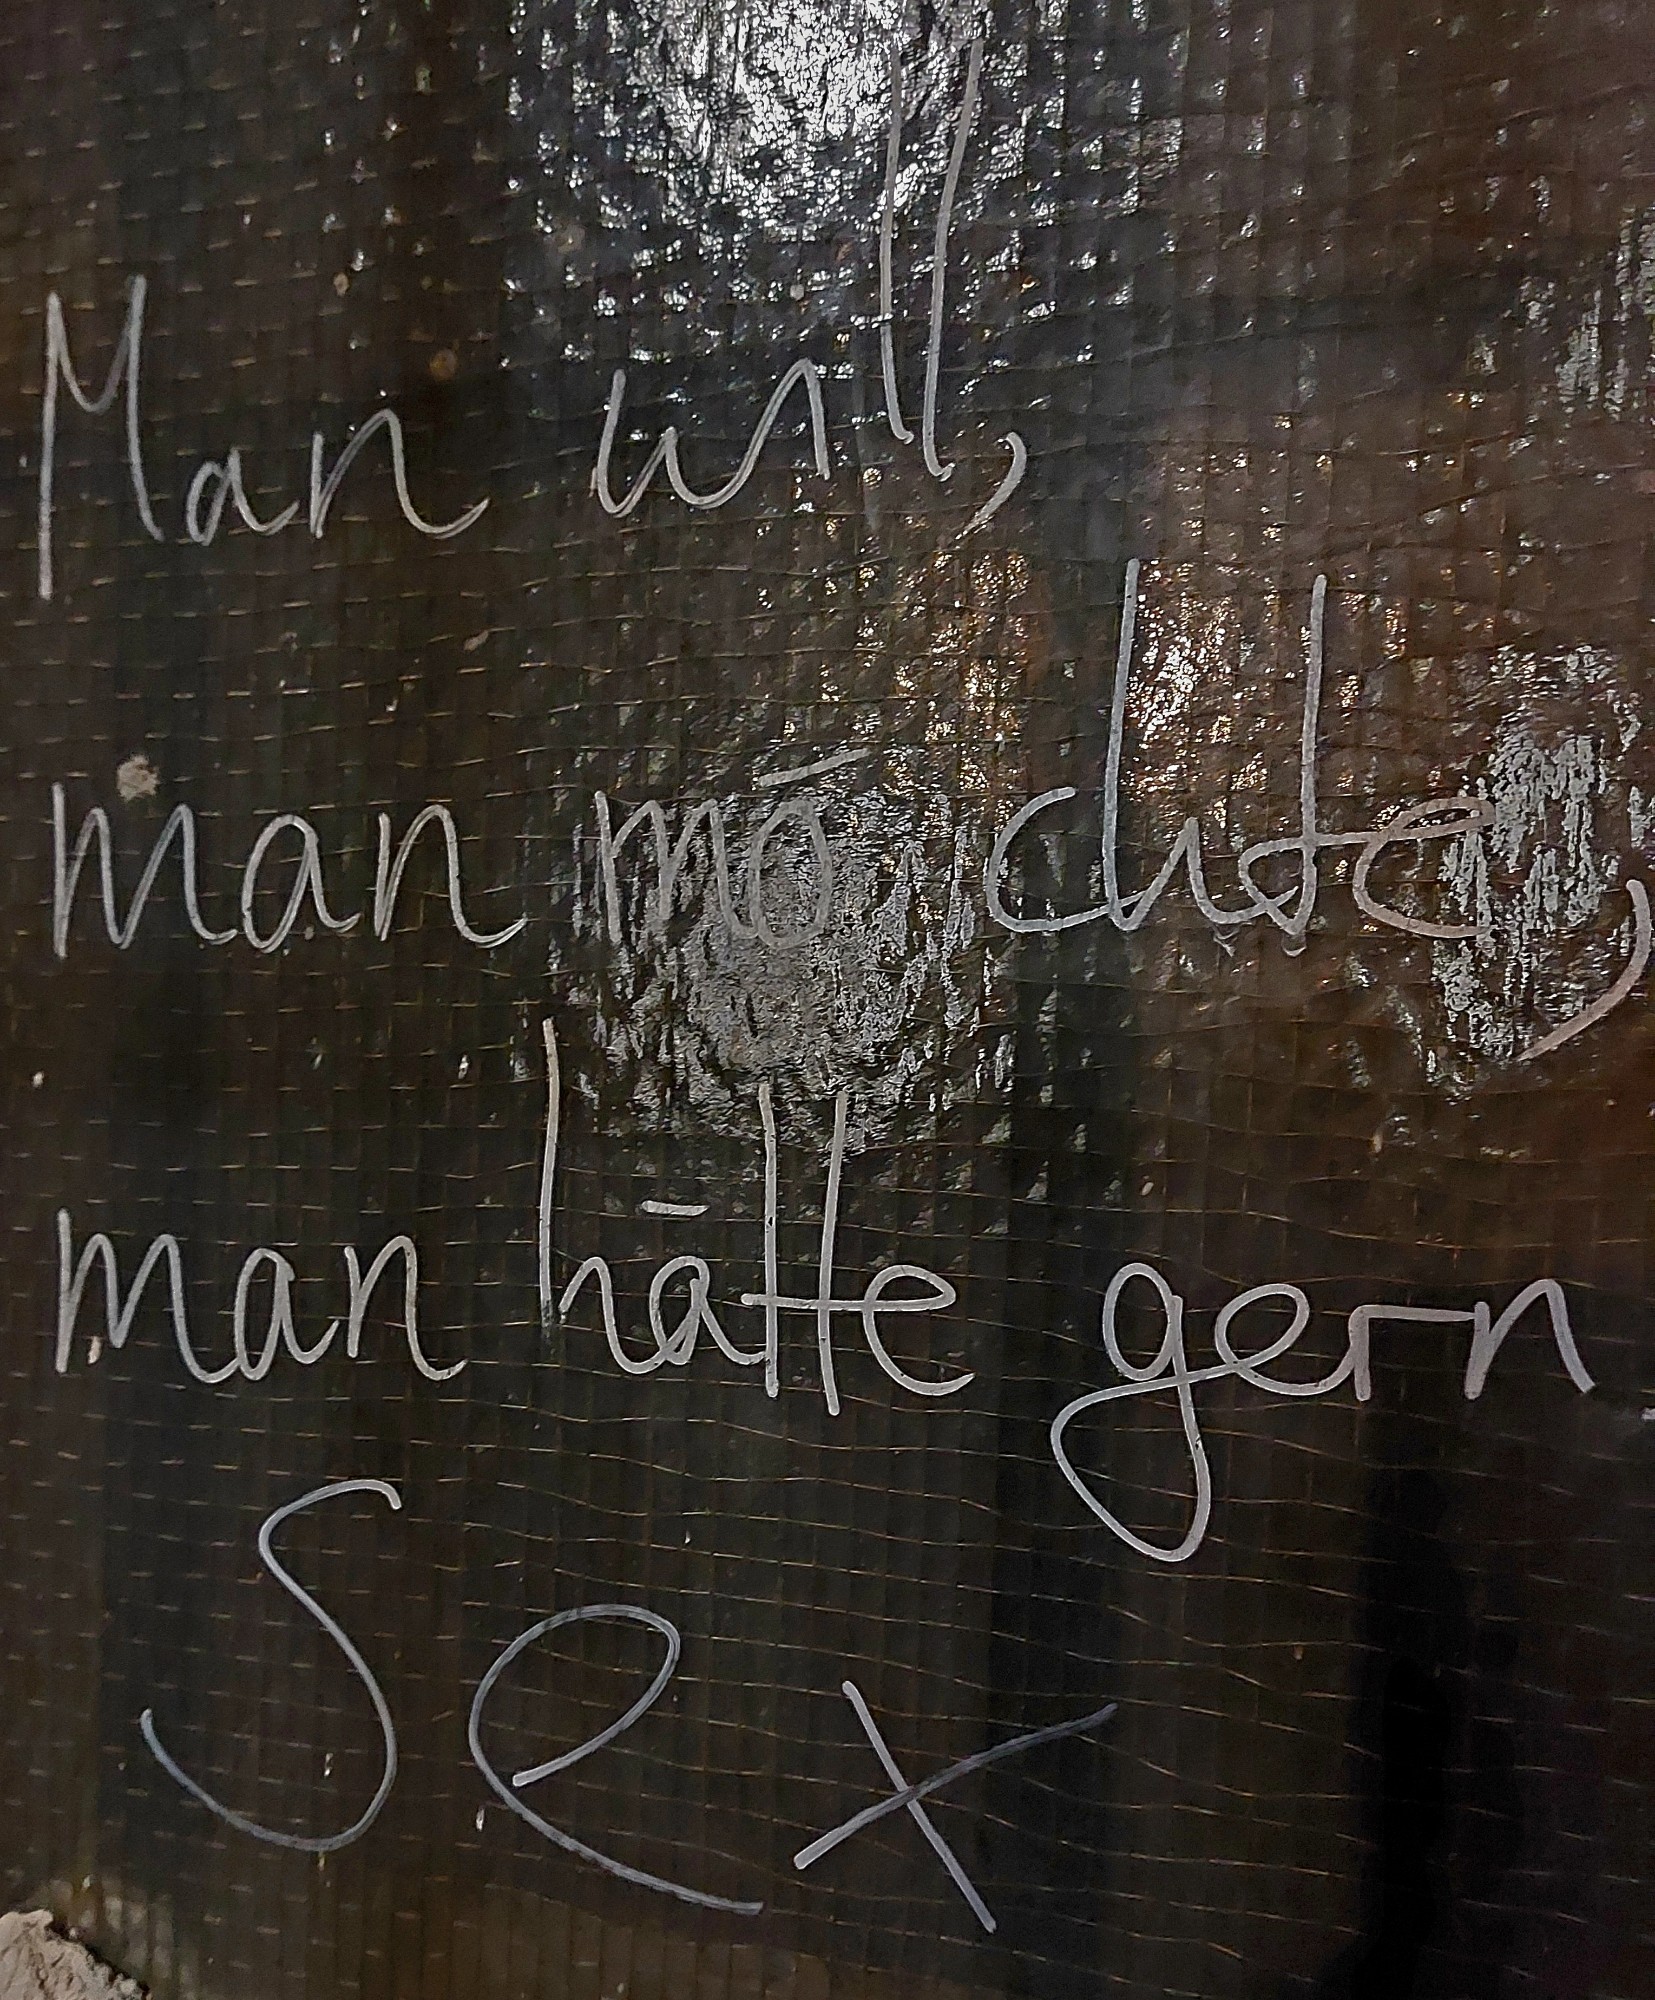 Man will,
man möchte,
man hätte gern
Sex